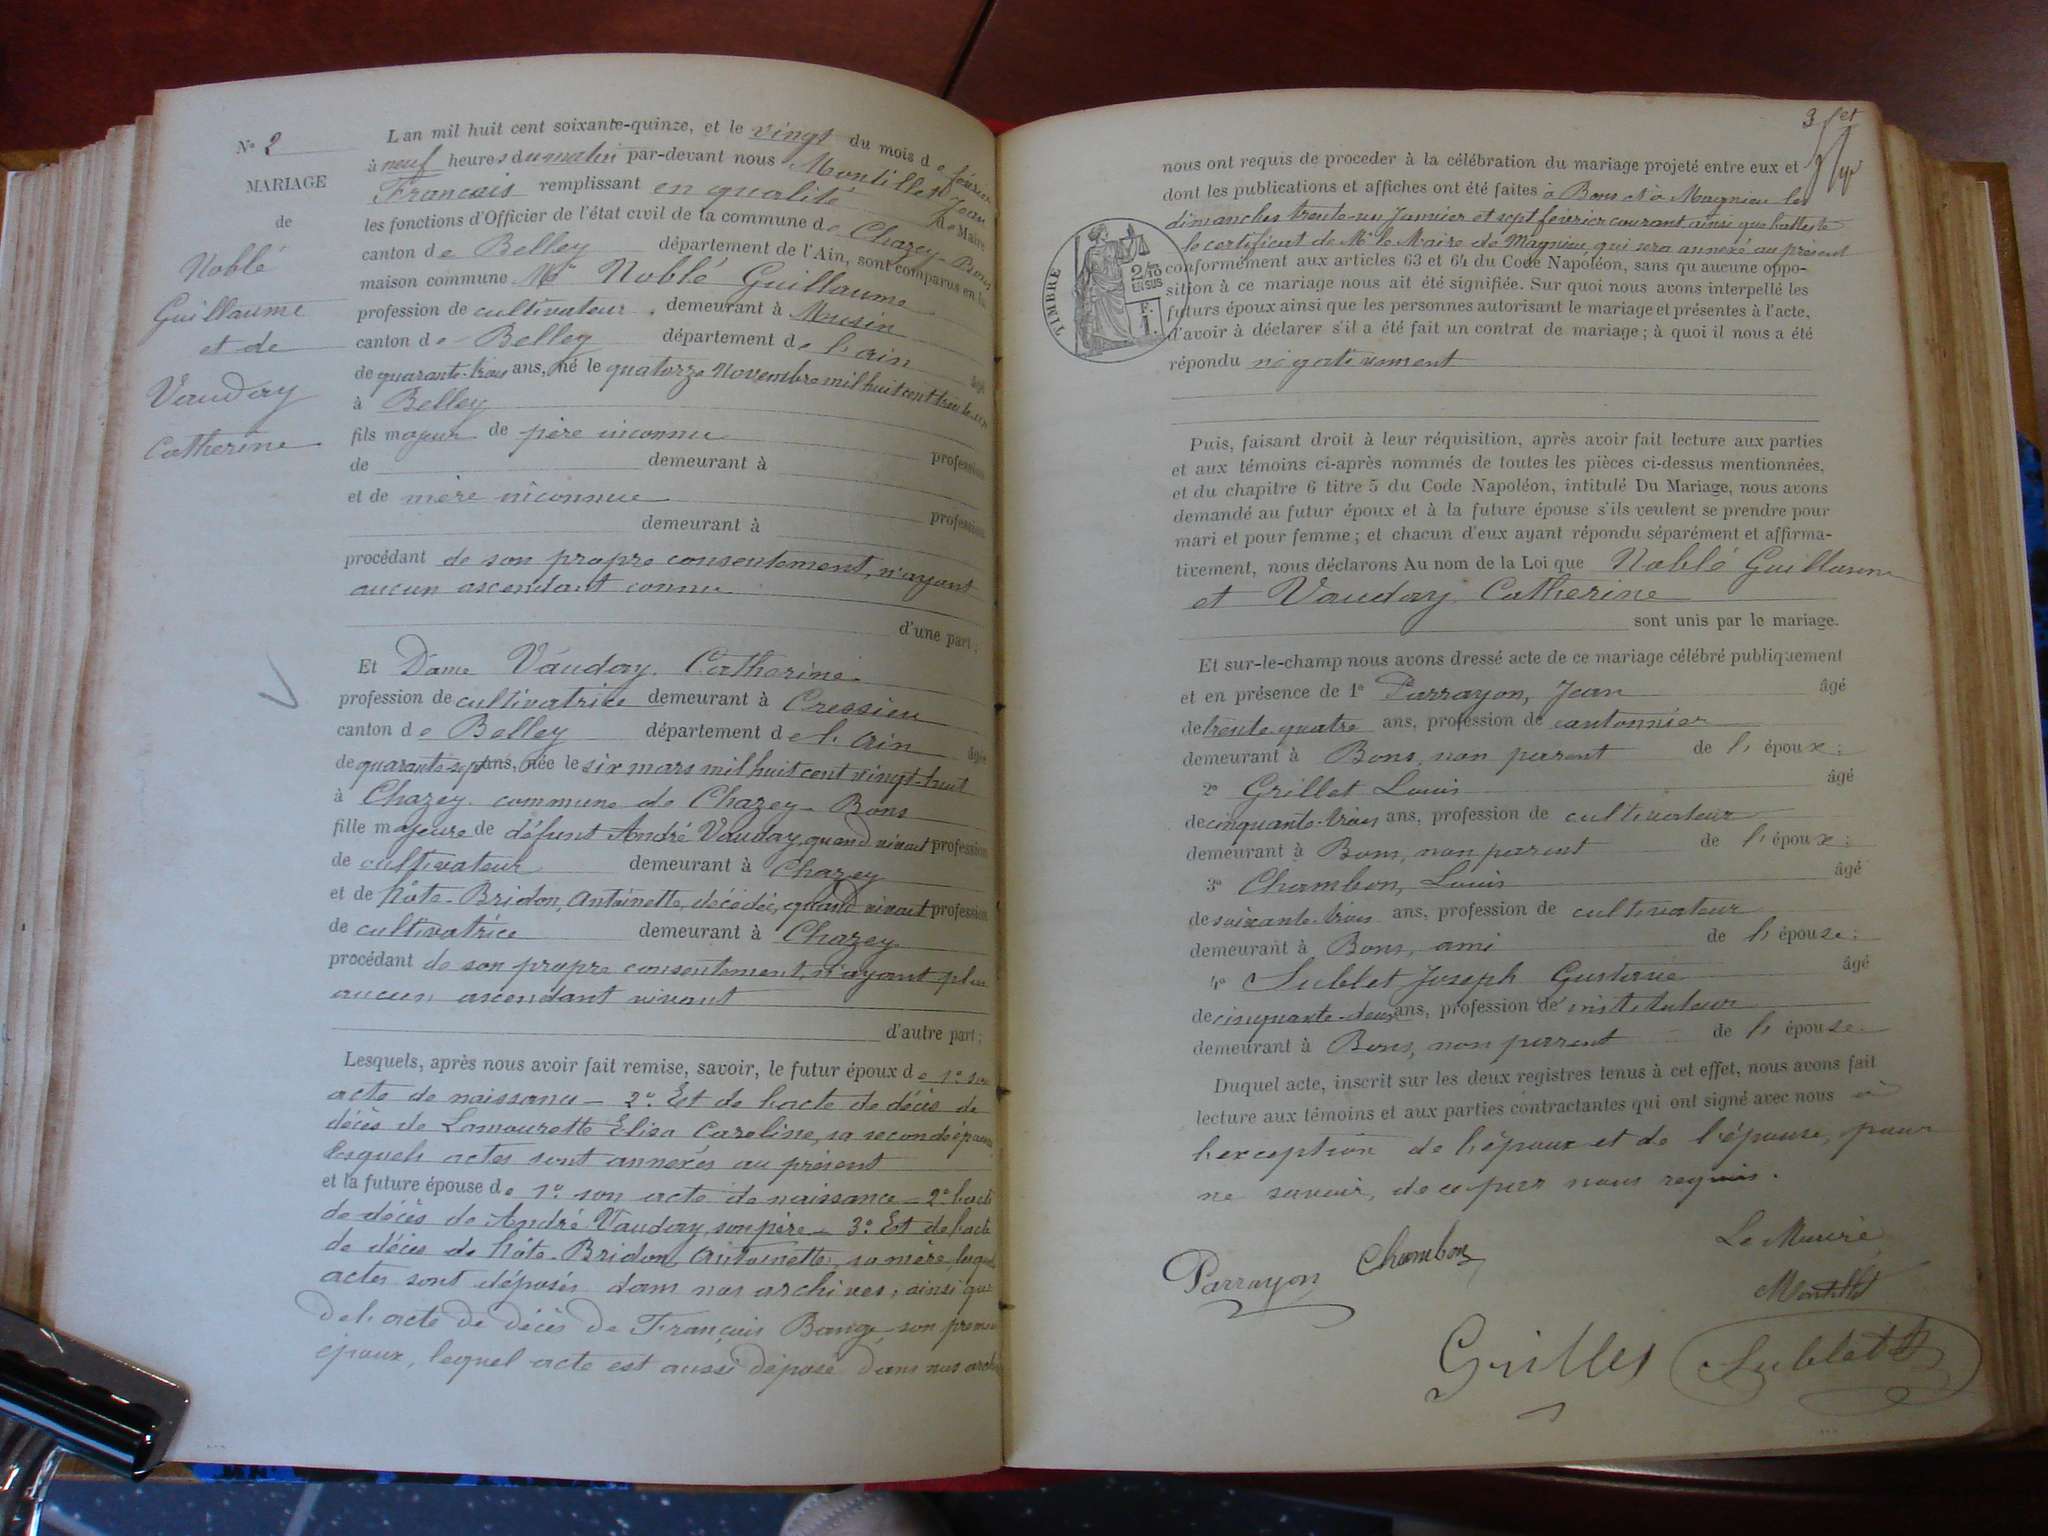 No 2
MARIAGE
de
Noblé
Guillaume
et de
Vauday
Catherine
L'an mil huit cent soixante-quinze, et le vingt du mois de février
à neuf heures du matin par-devant nous Montillet Jean
Francois remplissant en qualité de Maire
les fonctions d'Officier de l'état civil de la commune de Chazey-Bons
canton de Belley département de l'Ain, sont comparus en la
maison commune Mr Noblé Guillaume
profession de cultivateur, demeurant à Musin
canton de Belley département de l'ain âgé
de quarante-trois ans, né le quatorze Novembre mil huit cent trente-un
à Belley
fils majeur de père inconnu profession
de demeurant à
et de mère inconnue profession
demeurant à
procédant de son propre consentement, n'ayant
aucun ascendant connu
d'une part;
Et Dame Vauday Catherine
profession de cultivatrice demeurant à Cressieu
canton de Belley département de l'ain âgée
de quarante-sept ans, née le six mars mil huit cent vingt-huit
à Chazey commune de Chazey-Bons
fille majeure de défunt André Vauday, quand vivait profession
de cultivateur demeurant à Chazey
et de hôte-Bridon, Antoinette, décédée, quand vivait profession
de cultivatrice demeurant à Chazey
procédant de son propre consentement, n'ayant plus
aucun ascendant vivant
d'autre part;
Lesquels, après nous avoir fait remise, savoir, le futur époux de 1o son
acte de naissance - 2o Et de l'acte de décès de
décès de Lamourette Elisa Caroline, sa seconde épouse
lesquels actes sont annexés au présent
et la future épouse de 1o son acte de naissance - 2o l'acte
de décès de André Vauday, son père - 3o Et de l'acte
de décès de hôte-Bridon Antoinette, sa mère, lesquels
actes sont déposés dans nos archives, ainsi que
de l'acte de décès de François Bauge, son premier
époux, lequel acte est aussi déposé dans nos archives
3
nous ont requis de proceder à la célébration du mariage projeté entre eux et
dont les publications et affiches ont été faites à Bons et à Magnieu les
dimanches trente-un Janvier et sept février courant, ainsi que l'atteste
le certificat de Mr le Maire de Magnieu qui sera annexé au présent
conformément aux articles 63 et 64 du Code Napoléon, sans qu'aucune oppo-
sition à ce mariage nous ait été signifiée. Sur quoi nous avons interpellé les
futurs époux ainsi que les personnes autorisant le mariage et présentes à l'acte,
d'avoir à déclarer s'il a été fait un contrat de mariage; à quoi il nous a été
répondu négativement
TIMBRE
2/10
EN SUS
F.
1.
Puis, faisant droit à leur réquisition, après avoir fait lecture aux parties
et aux témoins ci-après nommés de toutes les pièces ci-dessus mentionnées,
et du chapitre 6 titre 5 du Code Napoléon, intitulé Du Mariage, nous avons
demandé au futur époux et à la future épouse s'ils veulent se prendre pour
mari et pour femme; et chacun d'eux ayant répondu séparément et affirma-
tivement, nous déclarons Au nom de la Loi que Noblé Guillaume
et Vauday Catherine
sont unis par le mariage.
Et sur-le-champ nous avons dressé acte de ce mariage célébré publiquement
et en présence de 1o Parrayon, Jean âgé
de trente-quatre ans, profession de cantonnier
demeurant à Bons, non parent de l'époux;
2o Grillet Louis âgé
de cinquante-trois ans, profession de cultivateur
demeurant à Bons, non parent de l'époux;
3o Chambon, Louis âgé
de soixante-trois ans, profession de cultivateur
demeurant à Bons, ami de l'épouse;
4o Sublet Joseph Gustave âgé
de cinquante-deux ans, profession de instituteur
demeurant à Bons, non parent de l'épouse
Duquel acte, inscrit sur les deux registres tenus à cet effet, nous avons fait
lecture aux témoins et aux parties contractantes qui ont signé avec nous à
l'exception de l'époux et de l'épouse, pour
ne savoir, de ce par nous requis.
Le Maire
Parrayon Chambon Montillet
Grillet Sublet